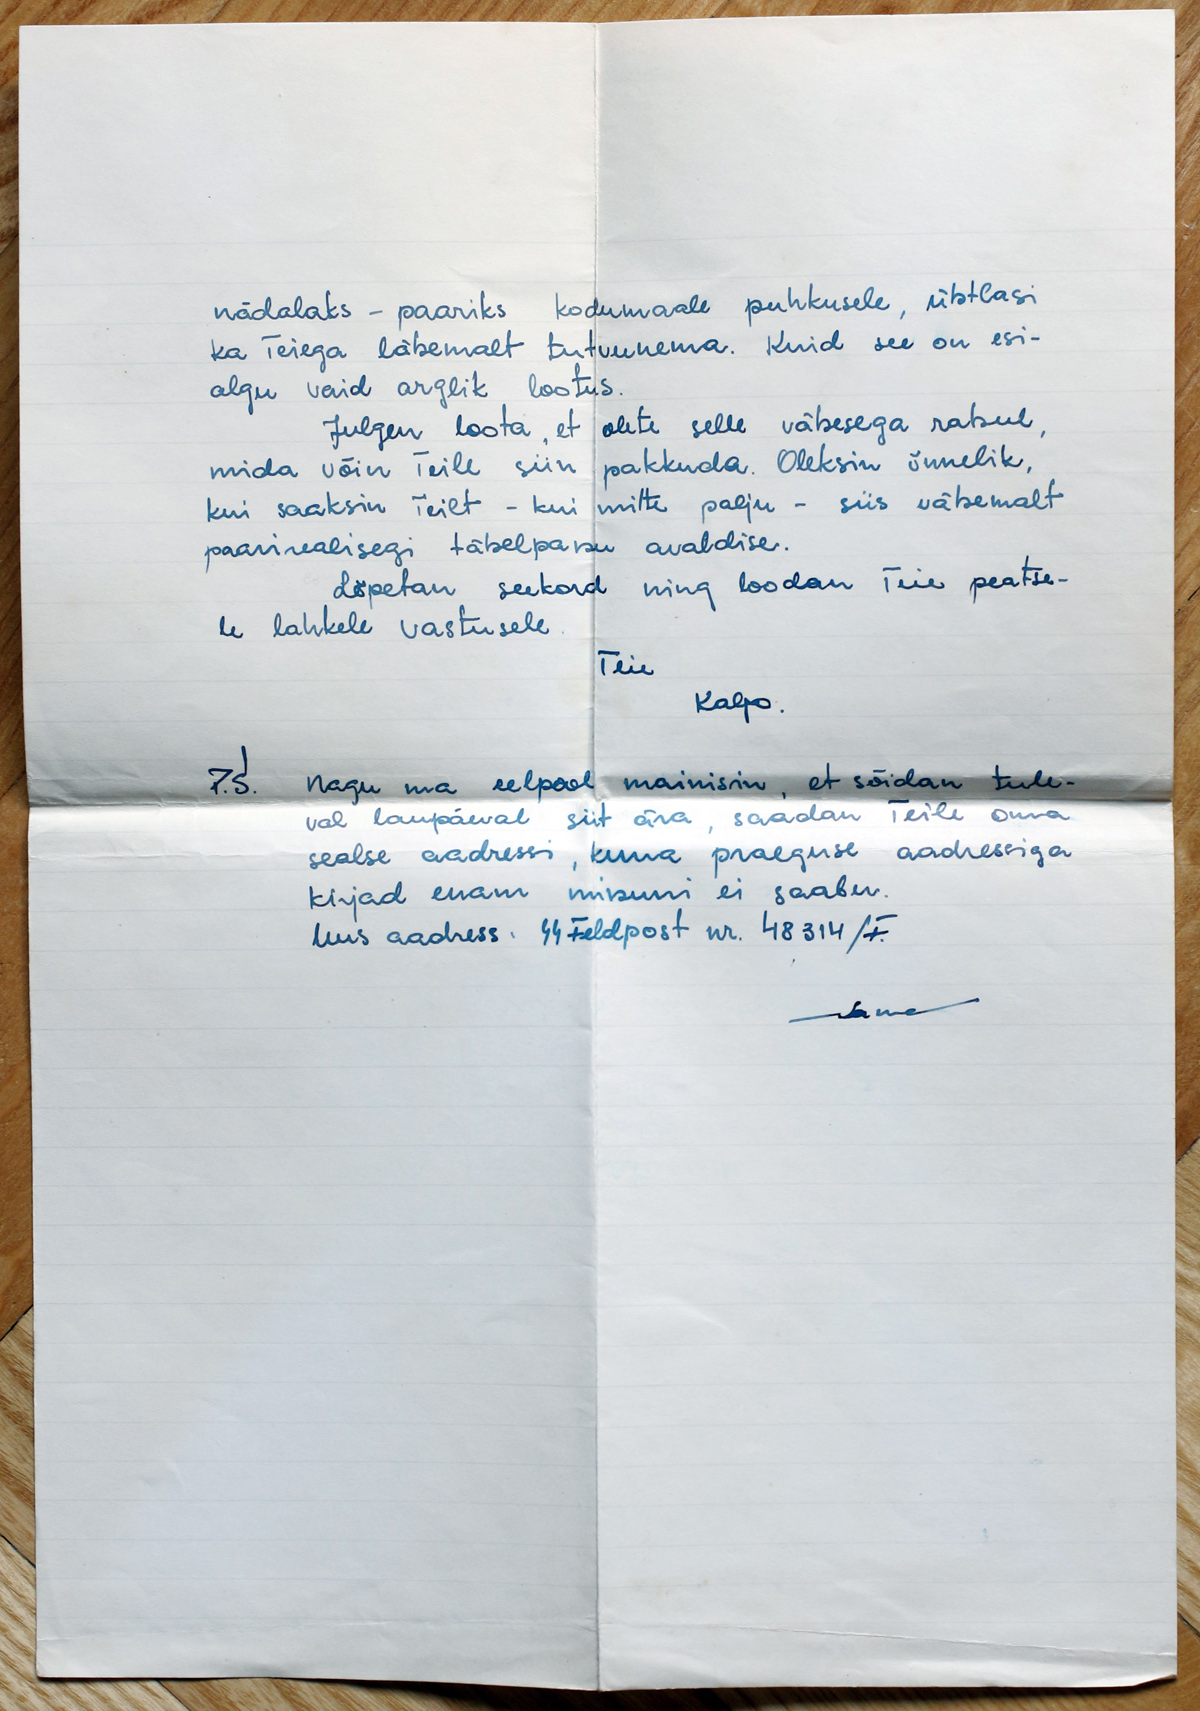 nädalaks – paariks kodumaale puhkusele, ühtlasi
ka Teiega lähemalt tutvunema. Kuid see on esi-
algu vaid arglik lootus.
Julgen loota, et olete selle vähesega rahul,
mida võin Teile siin pakkuda. Oleksin õnnelik,
kui saaksin Teilt – kui mitte palju – siis vähemalt
paarirealisegi tähelpanu avaldise.
Lõpetan seekord ning loodan Teie peatse-
le lahkele vastusele.
Teie
Kaljo.
P.S. Nagu ma eelpool mainisin, et sõidan tule-
val laupäeval siit ära, saadan Teile oma
sealse aadressi, kuna praeguse aadressiga
kirjad enam minuni ei saabu.
Uus aadress: SS Feldpost nr. 48314/F.
Sama